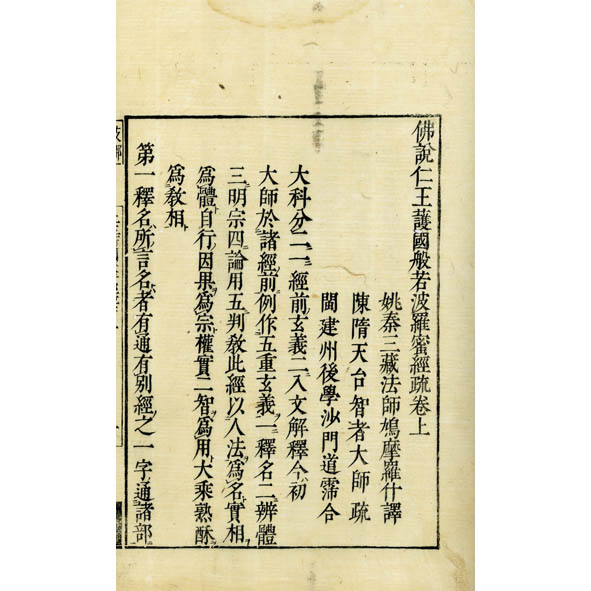 佛說仁王護國般若波羅蜜經疏卷上
姚秦三藏法師鳩摩羅什譯
陳隋天台智者大師疏
閩建州後學沙門道霈合
大科分二一經前玄義二入文解釋今初
大師於諸經前例作五重玄義一釋名二辨體
三明宗四論用五判教此經以人法爲名實相
爲體自行因果爲宗權實二智爲用大乘熟酥
爲教相
第一釋名所言名者有通有別經之一字通諸部